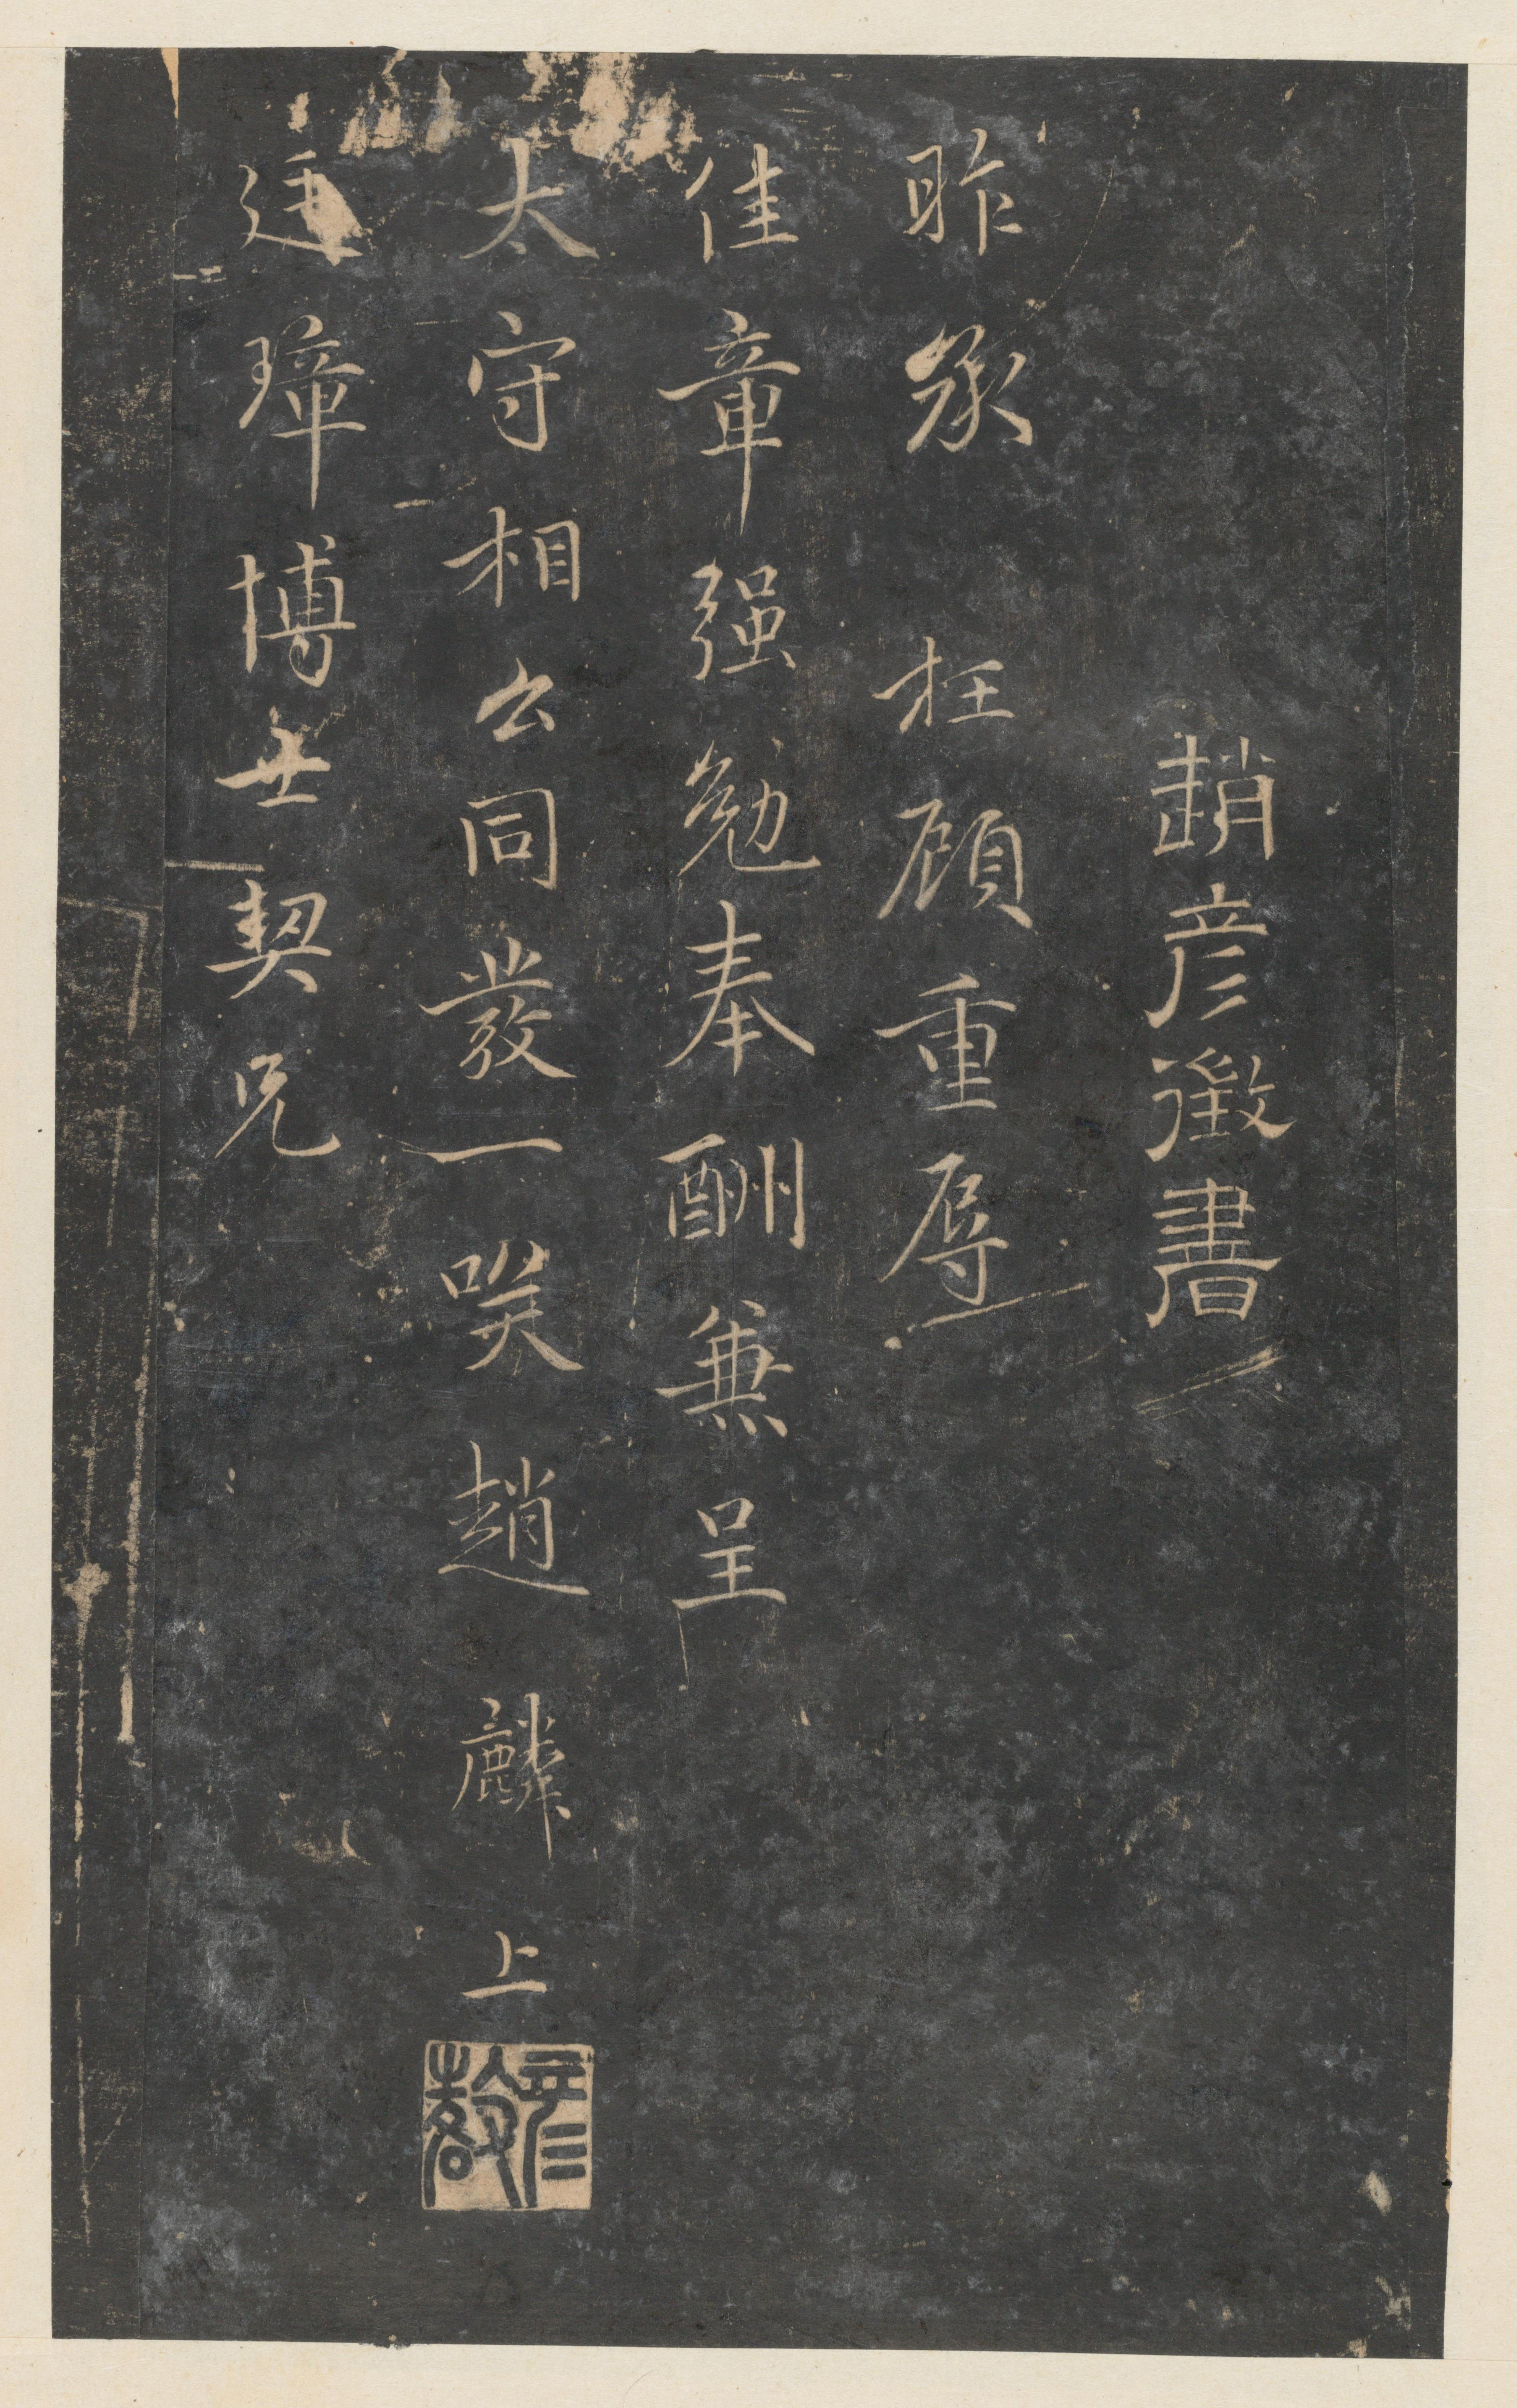 趙彥徵書
昨承枉顧重辱
佳章强勉奉酬兼呈
太守相公同發一笑趙麟上
廷璋博士契兄
彥敬